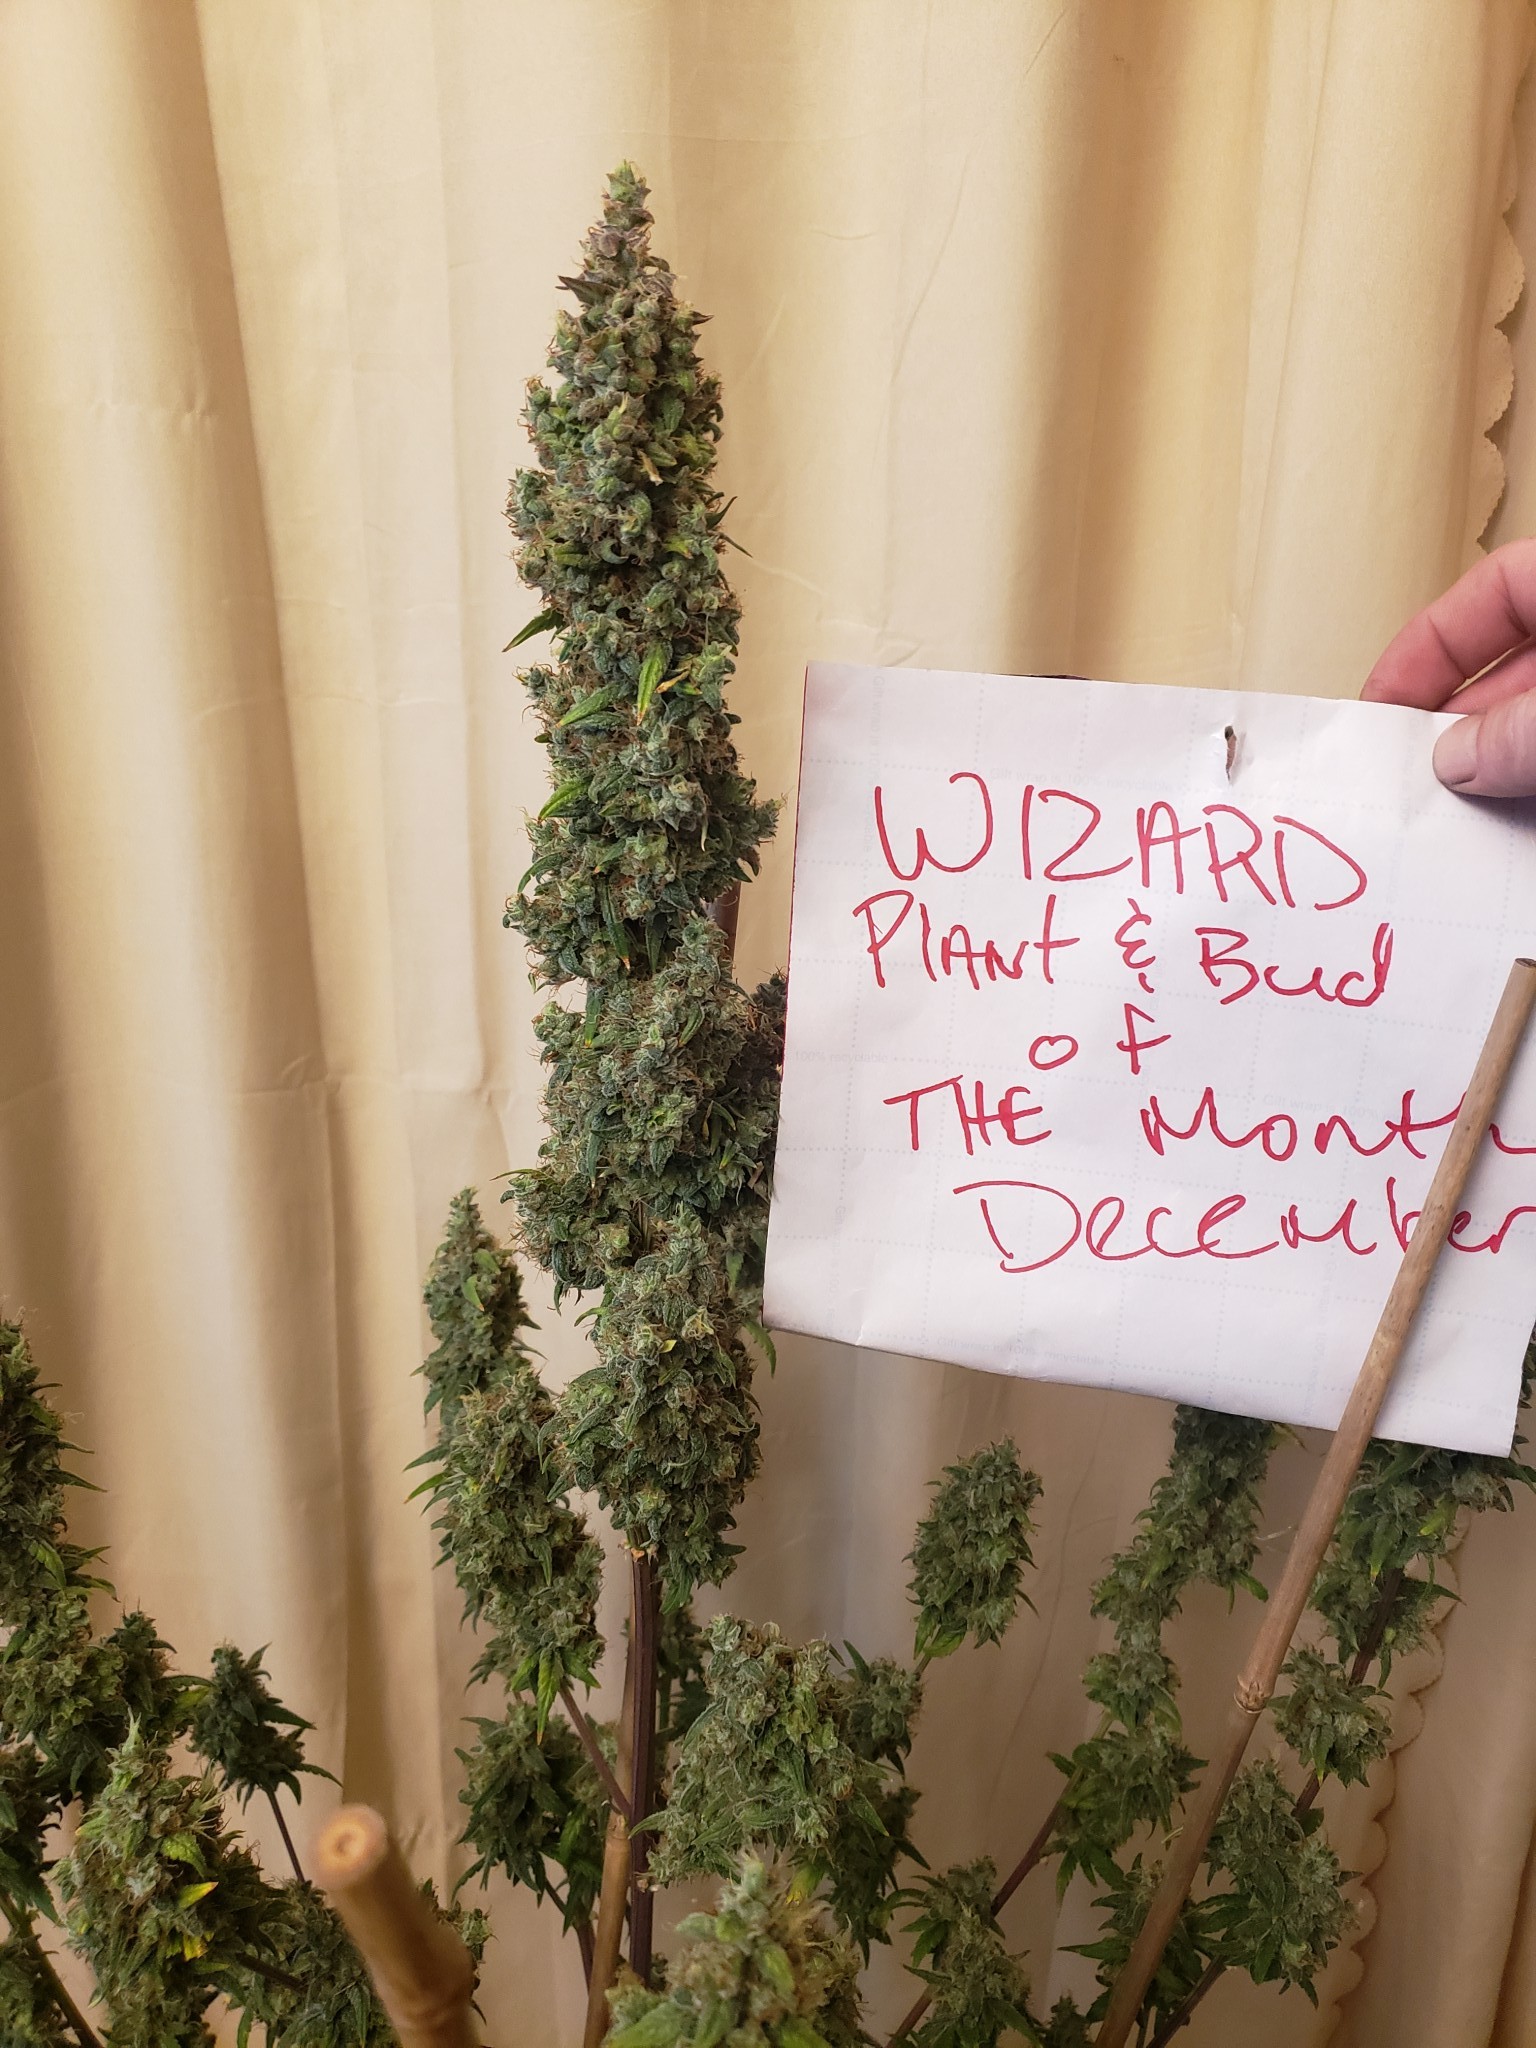 WIZARD
Plant & Bud
of
THE Month
December